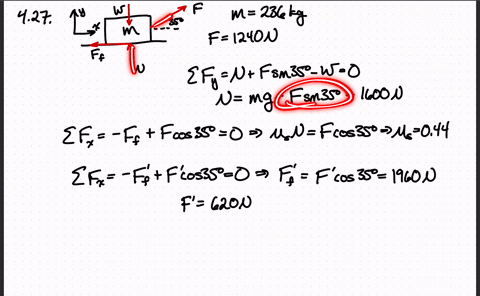 4.27.
y
x
W
m
F
35°
F_f
N
m = 236 kg
F = 1240 N
ΣF_y = N + F sin35° - W = 0
N = mg F sin35° 1600 N
ΣF_x = -F_f + F cos35° = 0 ⇒ μ_s N = F cos35° ⇒ μ_s = 0.44
ΣF_x = -F_f' + F' cos35° = 0 ⇒ F_f' = F' cos35° = 1960 N
F' = 620 N